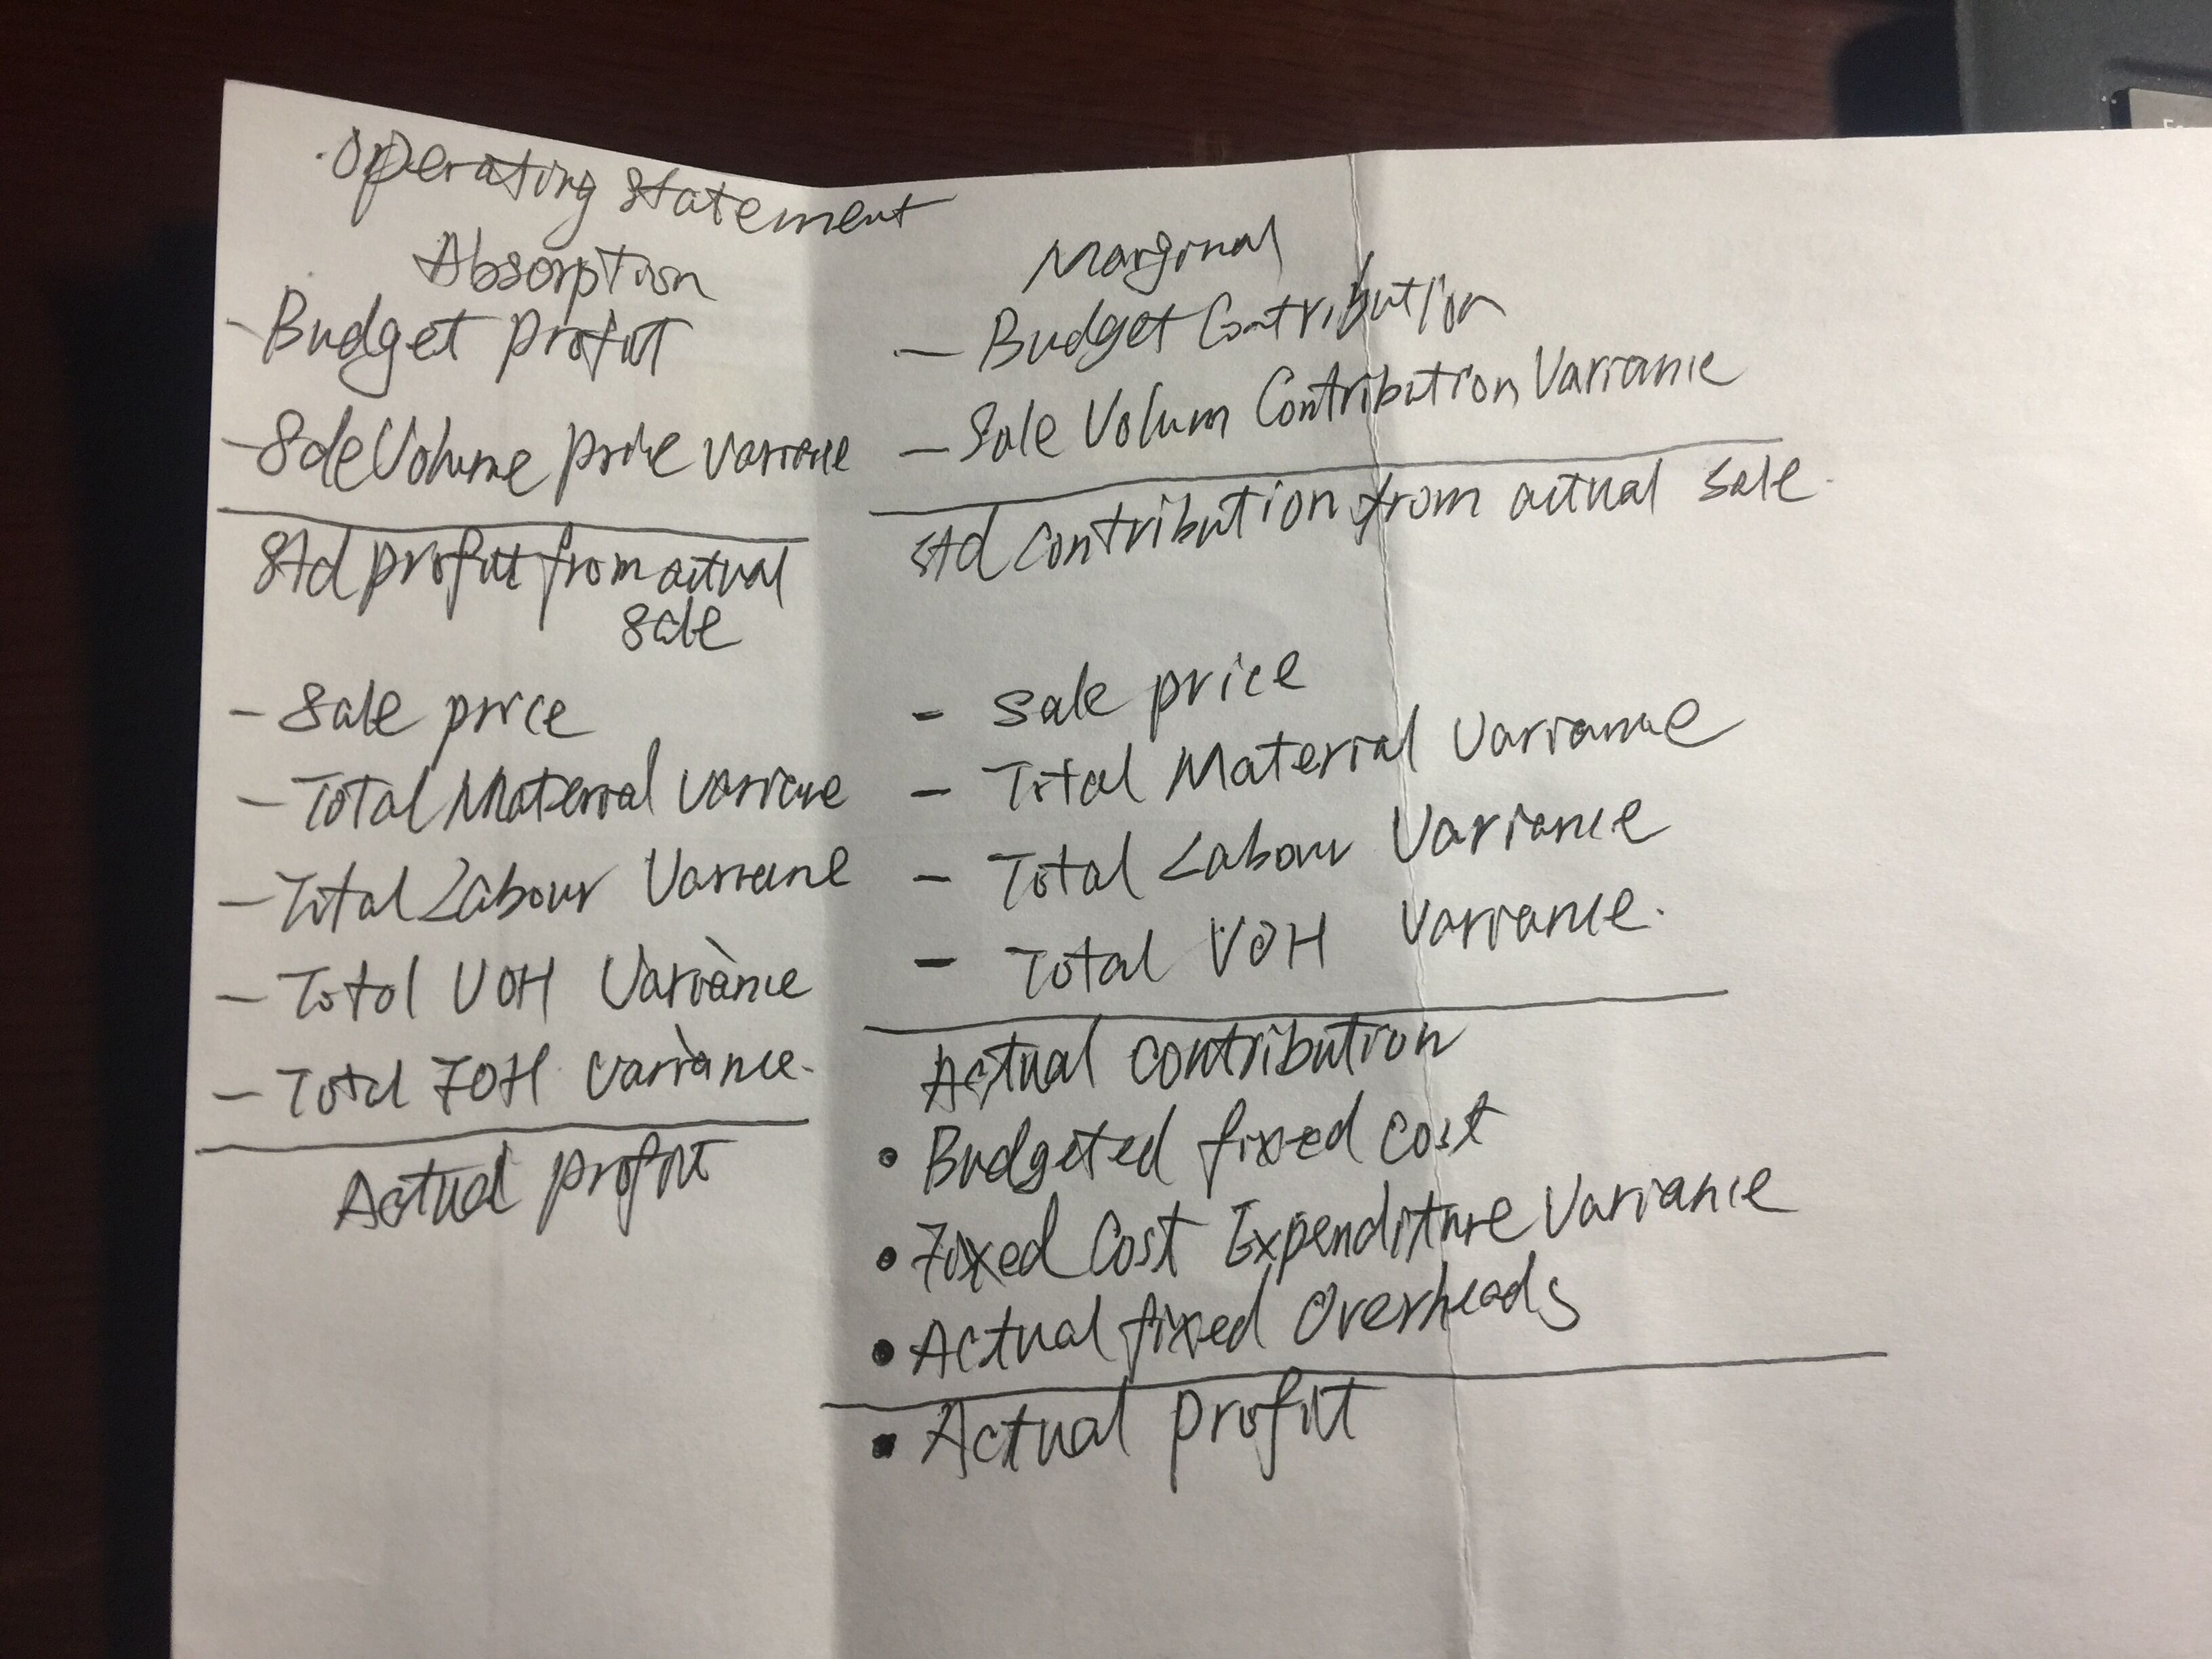 Operating Statement
Absorption
- Budget profit
- Sale Volume price variance
Std profit from actual
sale
- Sale price
- Total Material variance
- Total Labour Variance
- Total VOH Variance
- Total FOH variance.
Actual profit
Marginal
- Budget Contribution
- Sale Volum Contribution Variance
Std contribution from actual sale.
- Sale price
- Total Material Variance
- Total Labour Variance
- Total VOH Variance.
Actual contribution
• Budgeted fixed cost
• Fixed Cost Expenditure Variance
• Actual fixed Overheads
• Actual profit